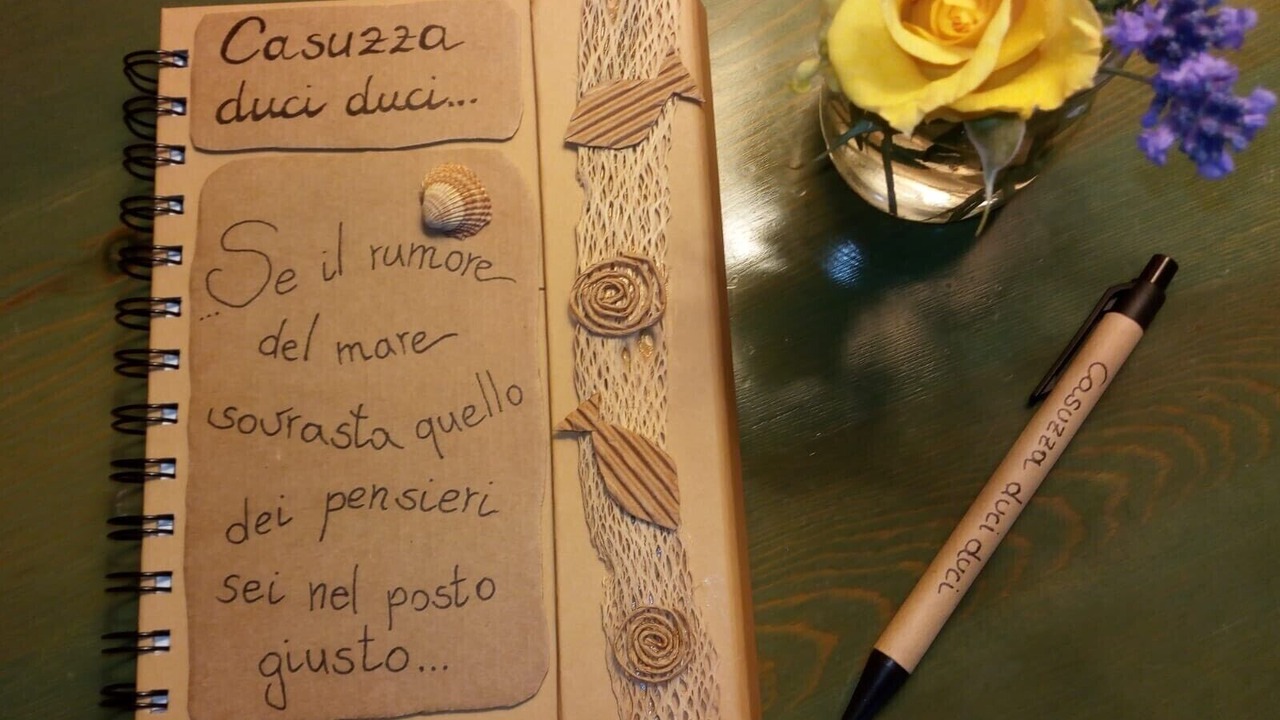 Casuzza
duci duci...
...Se il rumore
del mare
sovrasta quello
dei pensieri
sei nel posto
giusto...
Casuzza duci duci